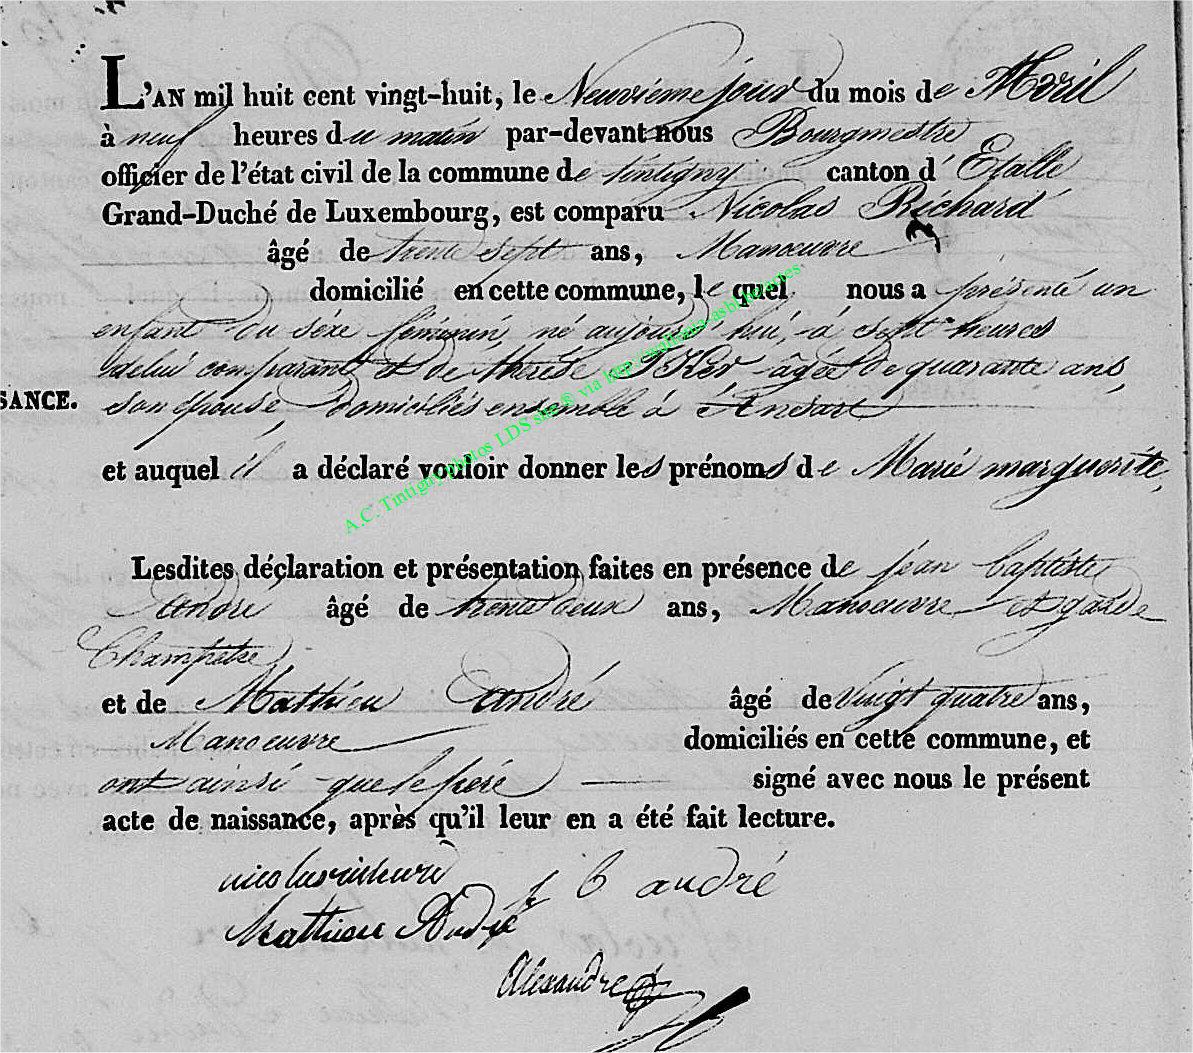 L'AN mil huit cent vingt-huit, le Neuvième jour du mois de Avril
à neuf heures du matin par-devant nous Bourgmestre
officier de l'état civil de la commune de tintigny canton d'Etalle
Grand-Duché de Luxembourg, est comparu Nicolas Richard
âgé de trente sept ans, Manœuvre
domicilié en cette commune, le quel nous a présenté un
enfant du séxe féminin, né aujourd'hui, à sept heures
de lui comparant et de thérèse âgée de quarante ans
son épouse domiciliés ensemble à Ansart
SANCE.
et auquel il a déclaré vouloir donner les prénoms de Marie marguerite,
Lesdites déclaration et présentation faites en présence de jean baptiste
André âgé de trente deux ans, Manoeuvre et garde
Champetre
et de Mathieu André âgé de vingt quatre ans,
Manoeuvre domiciliés en cette commune, et
ont ainsi que le père signé avec nous le présent
acte de naissance, après qu'il leur en a été fait lecture.
nicolas richard
j b andré
Mathieu André
Alexandre
A.C. Tintigny photos LDS site® via